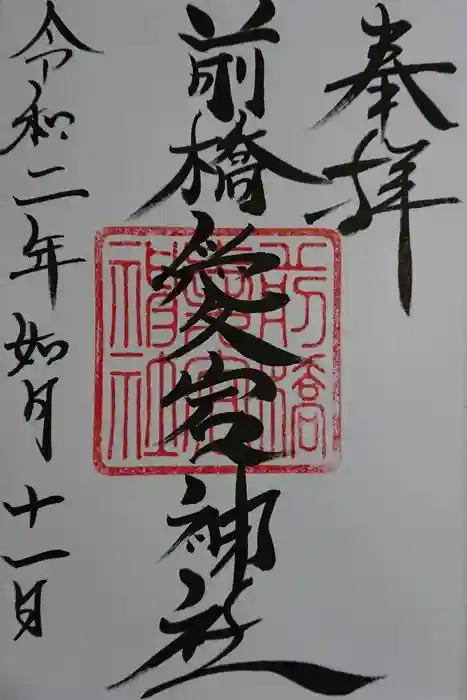 奉拝
前橋愛宕神社
前橋
愛宕
神社
令和二年如月十一日